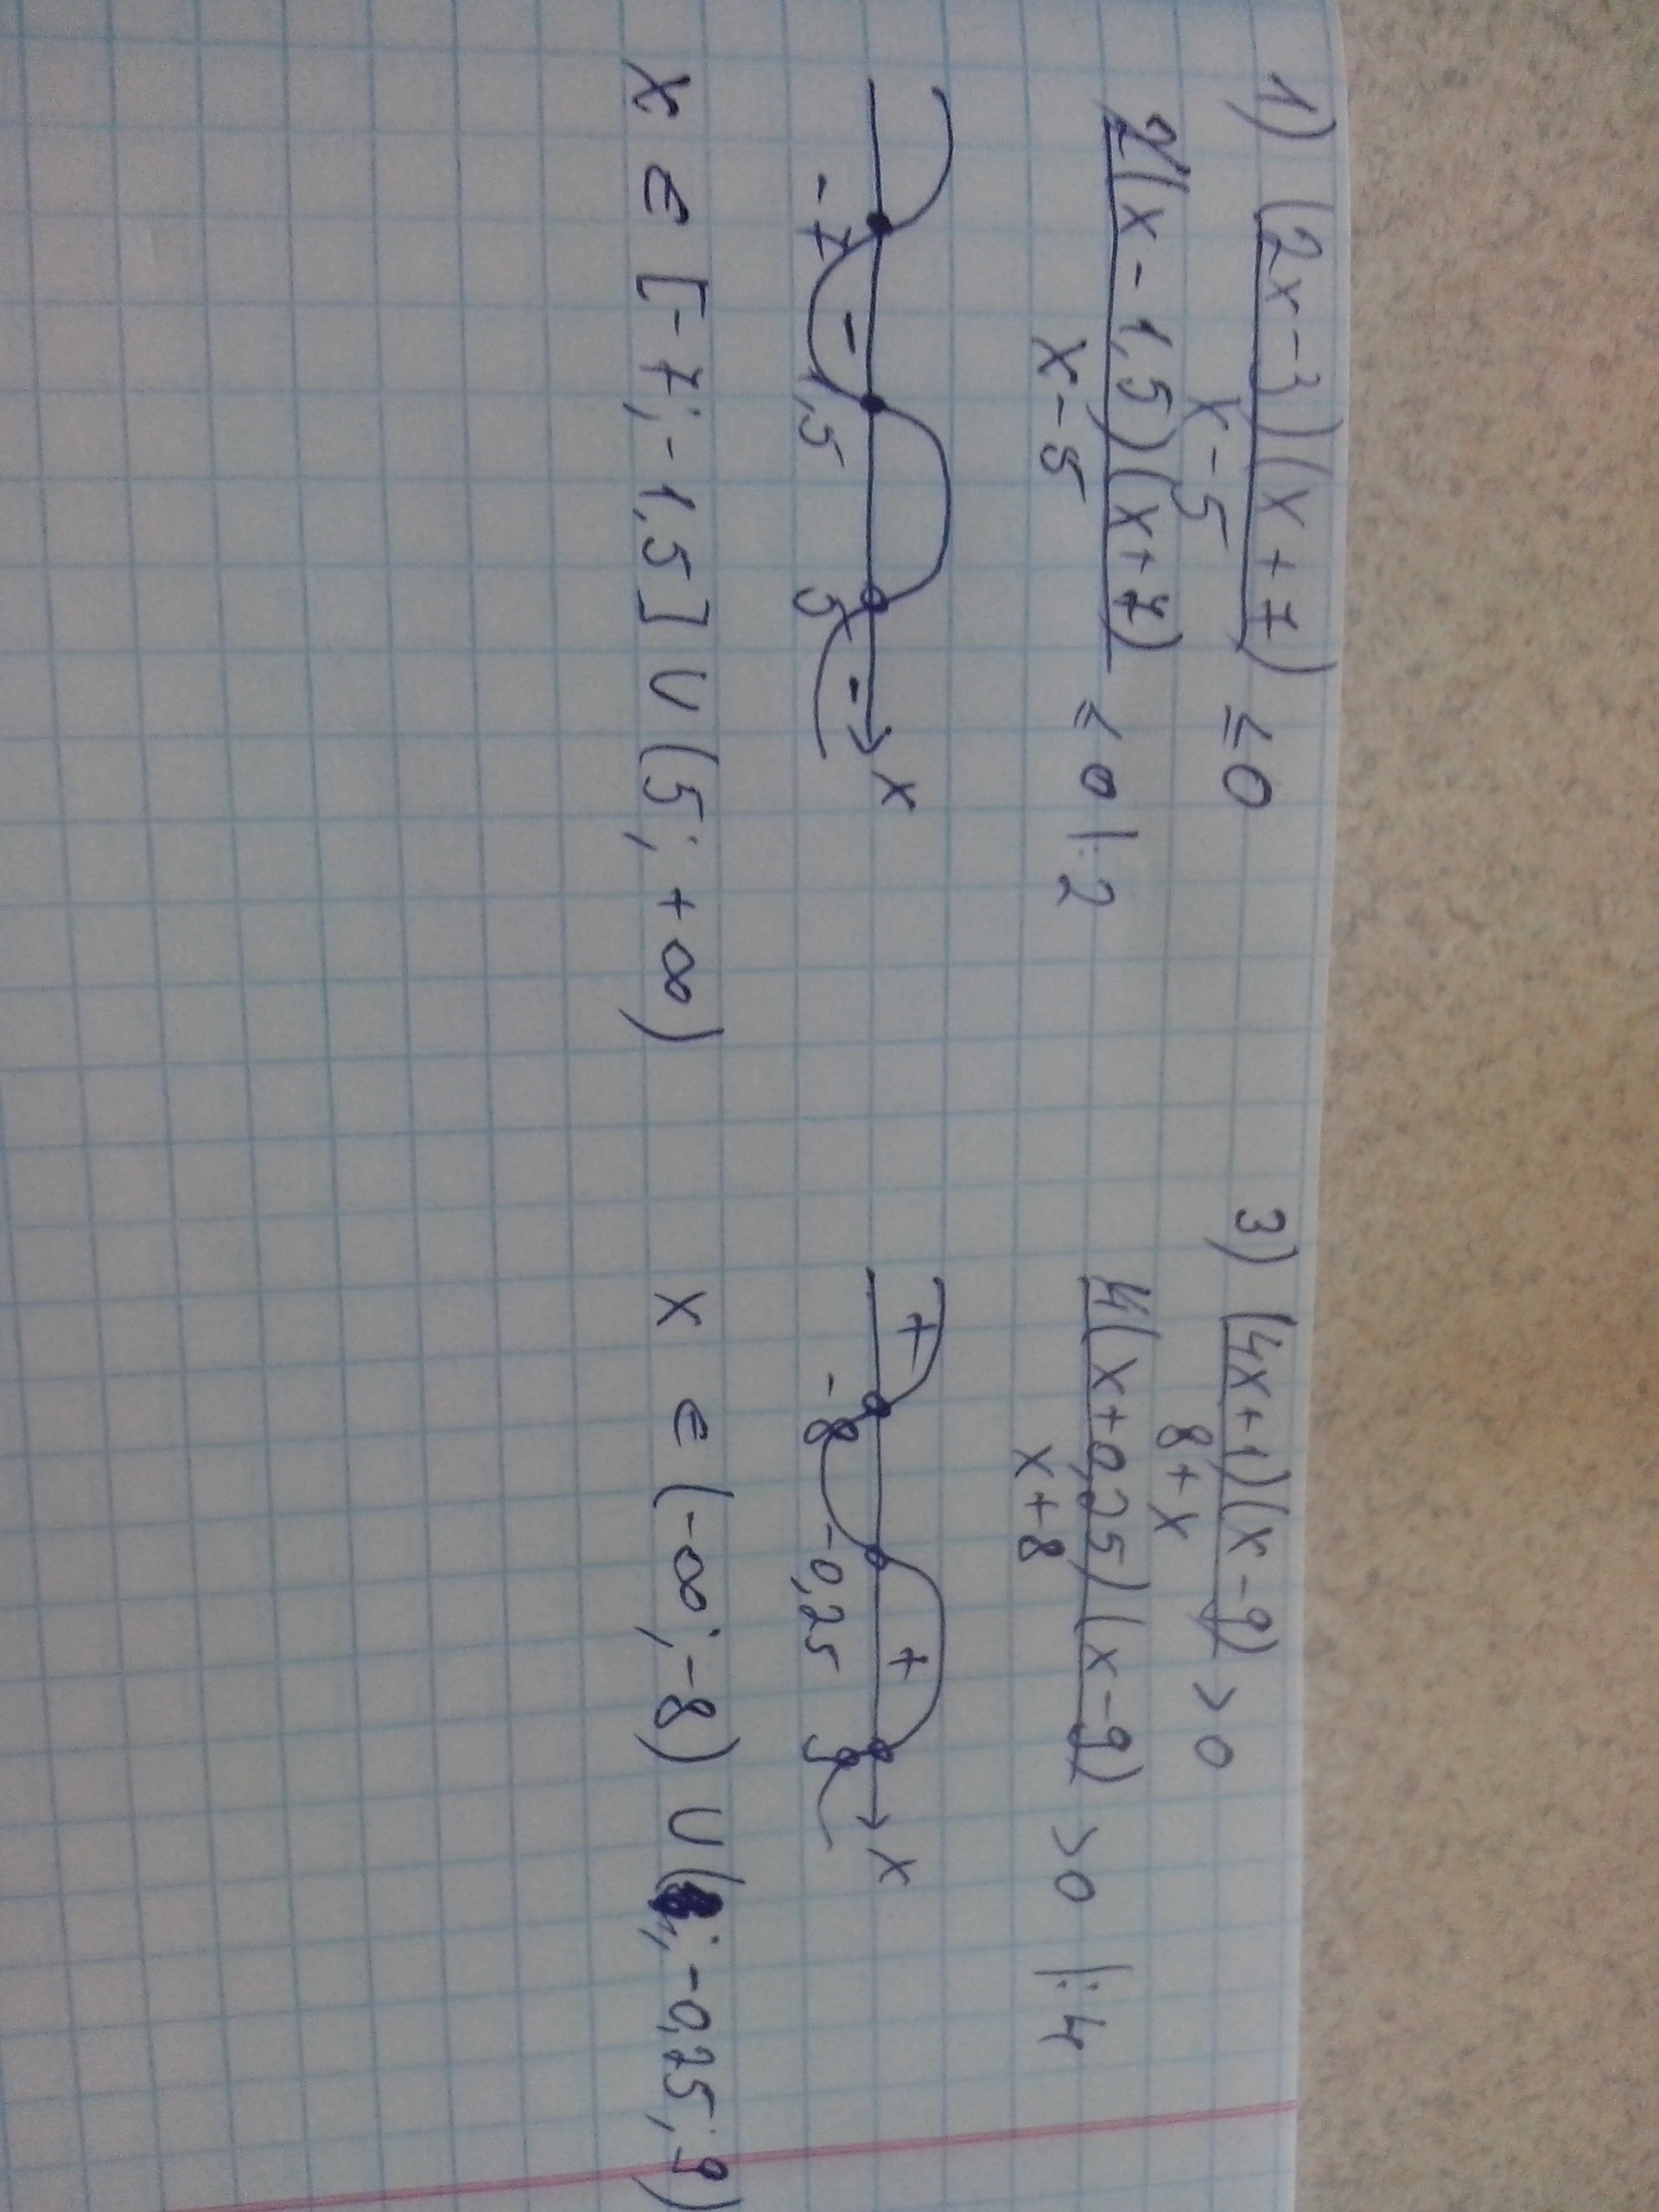 1) (2x-3)(x+7) ≤ 0
x-5
2(x-1,5)(x+7) ≤ 0 |:2
x-5
-7 - 1,5 5 - x
x ∈ [-7; -1,5] ∪ (5; +∞)
3) (4x+1)(x-9) > 0
8+x
4(x+0,25)(x-9) > 0 |:4
x+8
+ -8 -0,25 + 9 x
x ∈ (-∞; -8) ∪ (; -0,25; 9)